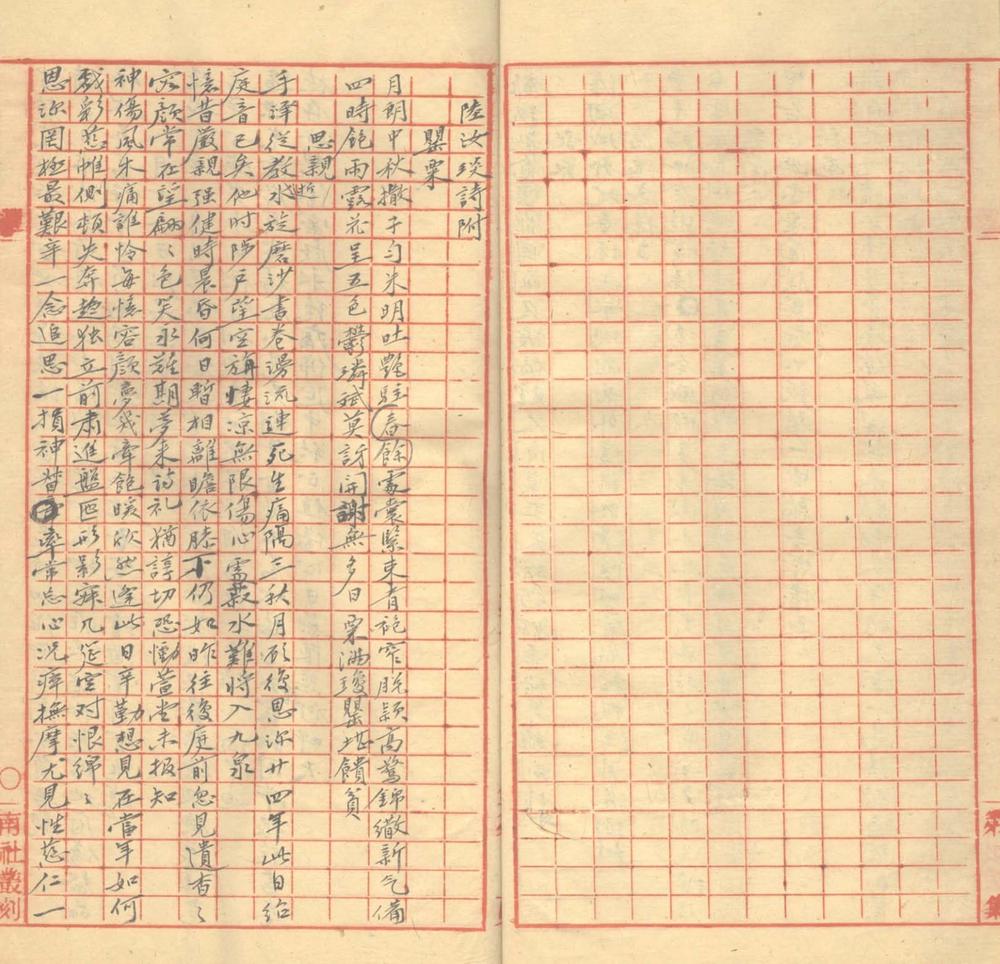 陸汝琰詩附
罌粟
月朗中秋撒子勻米明吐艷駐春餘霞裳緊束青袍窄脫穎高擎錦繖新气備
四時飽雨露花呈五色鬱璘斌莫訝開謝無多日粟滿瓊罌堪饋貧
思親
手澤從教水近旋磨沙書卷漫流連死生痛隔三秋月顧復思深廿四年此日給
庭音已矣他时陟戶望空旃悽凉無限傷心處菽水難將入九泉
憶昔嚴親强健時晨昏何日暫相離瞻依膝下仍如昨往後庭前忽見遺杳杳
容顏常在望翩翩色笑永難期夢来詩礼猶諄切恐慟萱堂未报知
神傷風木痛誰怜每憶容顏夢幾牽飽暖欣然逢此日辛勤想見在當年如何
戲彩慈幃側頓失奔趋独立前肅進盤匜形影寂几筵空对恨绵绵
思深罔極最艱辛一念追思一損神督率常忘心况瘁撫摩尤見性慈仁一
南社叢刻